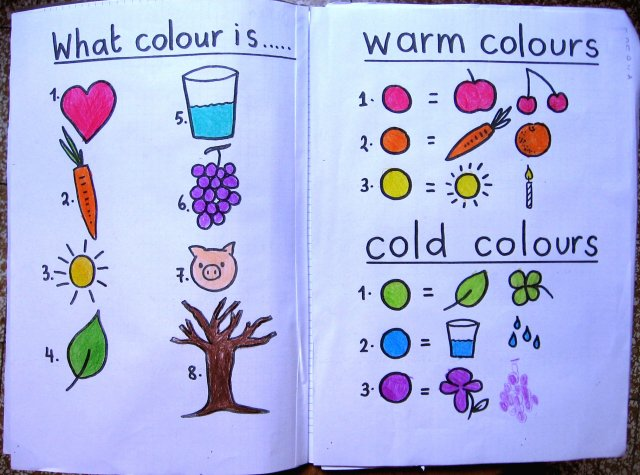 What colour is.....
1.
2.
3.
4.
5.
6.
7.
8.
warm colours
1. =
2. =
3. =
cold colours
1. =
2. =
3. =